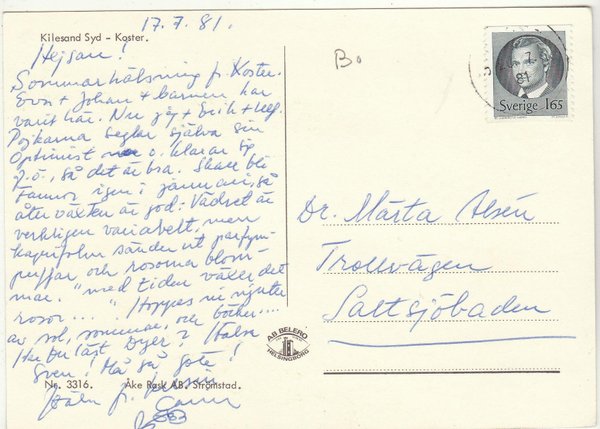 17.7.81.
Kilesand Syd - Koster.
Hejsan!
Sommarhälsning fr. Koster.
Eva + Johan + barnen har
varit här. Nu jag + Erik + Ulf.
Pojkarna seglar själva sin
Optimist o. klarar sig
så det är bra. Skall bli
igen i januari, så
åter växten är god. Vädret är
verkligen variabelt, men
kaprifolen sänder ut parfym-
puffar och rosorna blom-
mar. "med tiden växer det
rosor...." Hoppas ni njuter
av sol, sommar, och böcker....
Du läst Dyer? Hälsa
Sven! Må så gott!
Nr. 3316. Åke Rask AB. Strömstad.
fr.
B.
Sverige 165
81
Dr. Märta
Trollvägen
Saltsjöbaden
A.B BELERO
HELSINGBORG